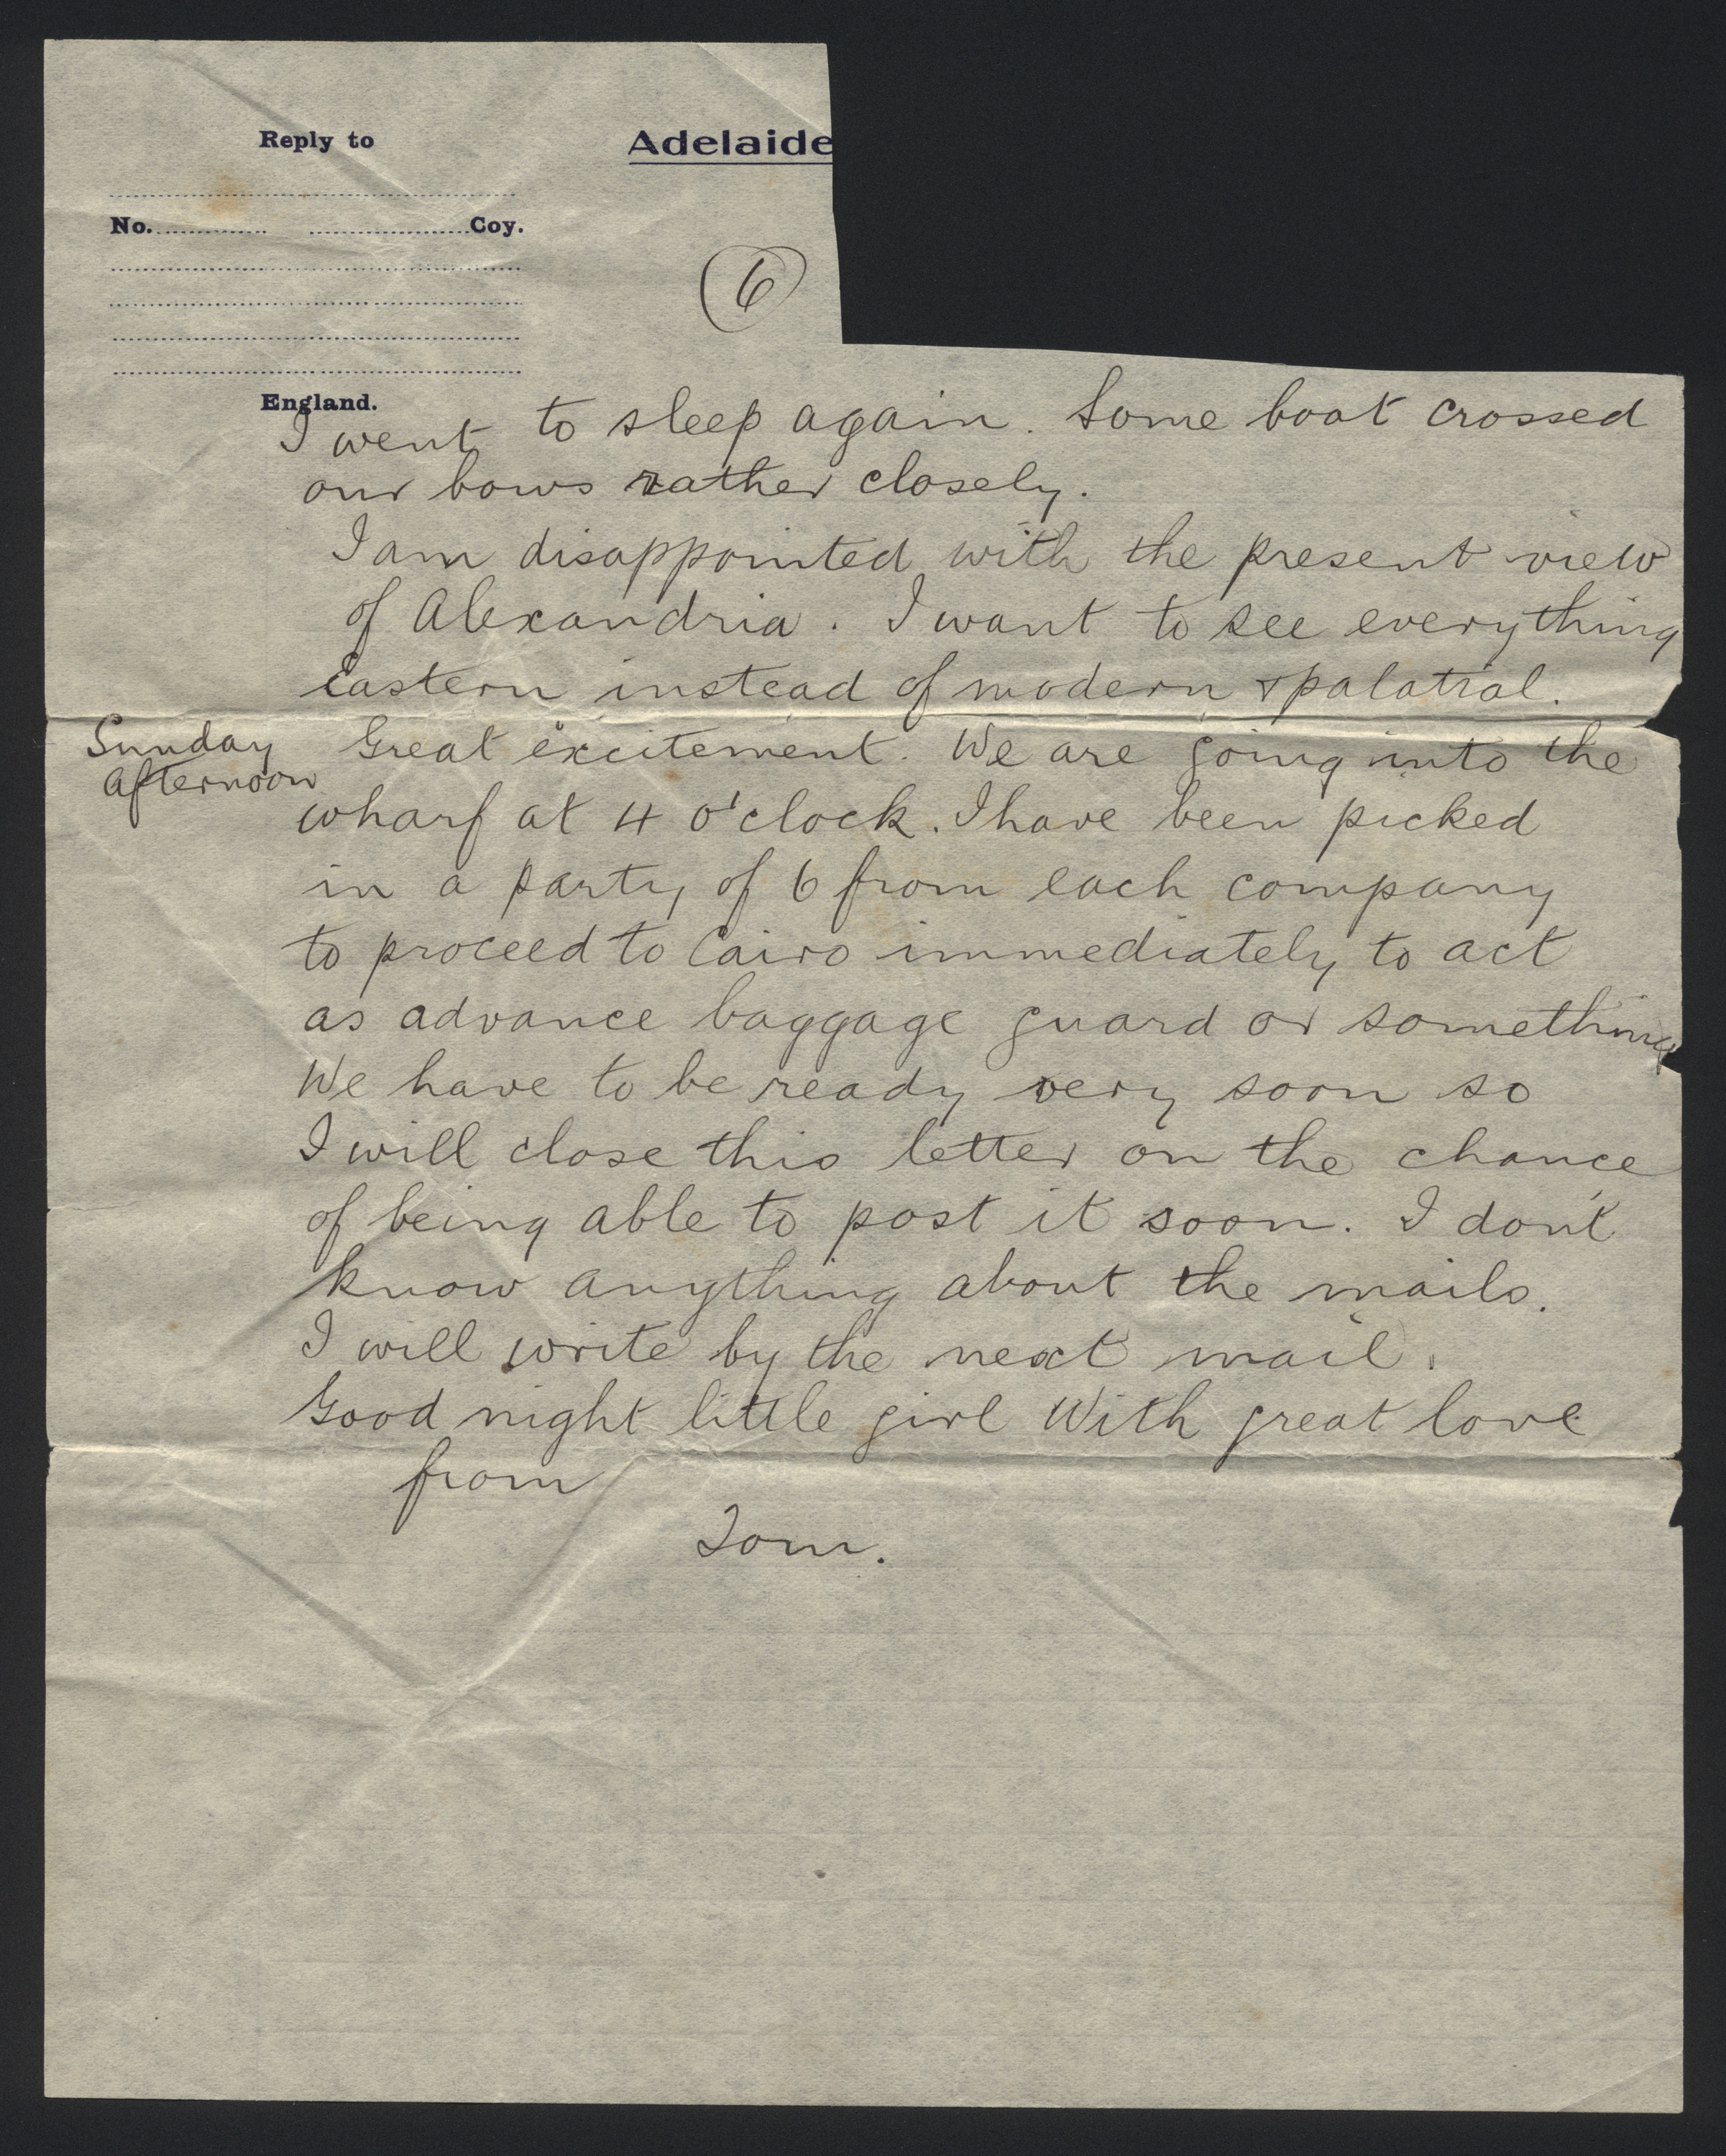 Reply to
Adelaide
No. Coy.
6
England.
I went to sleep again. Some boat crossed
our bows rather closely.
I am disappointed with the present view
of Alexandria. I want to see everything
Eastern instead of modern & palatial.
Sunday
Afternoon
Great excitement. We are going into the
wharf at 4 o'clock. I have been picked
in a party of 6 from each company
to proceed to Cairo immediately to act
as advance baggage guard or something
We have to be ready very soon so
I will close this letter on the chance
of being able to post it soon. I don't
know anything about the mails.
I will write by the next mail.
Good night little girl With great love
from
Tom.